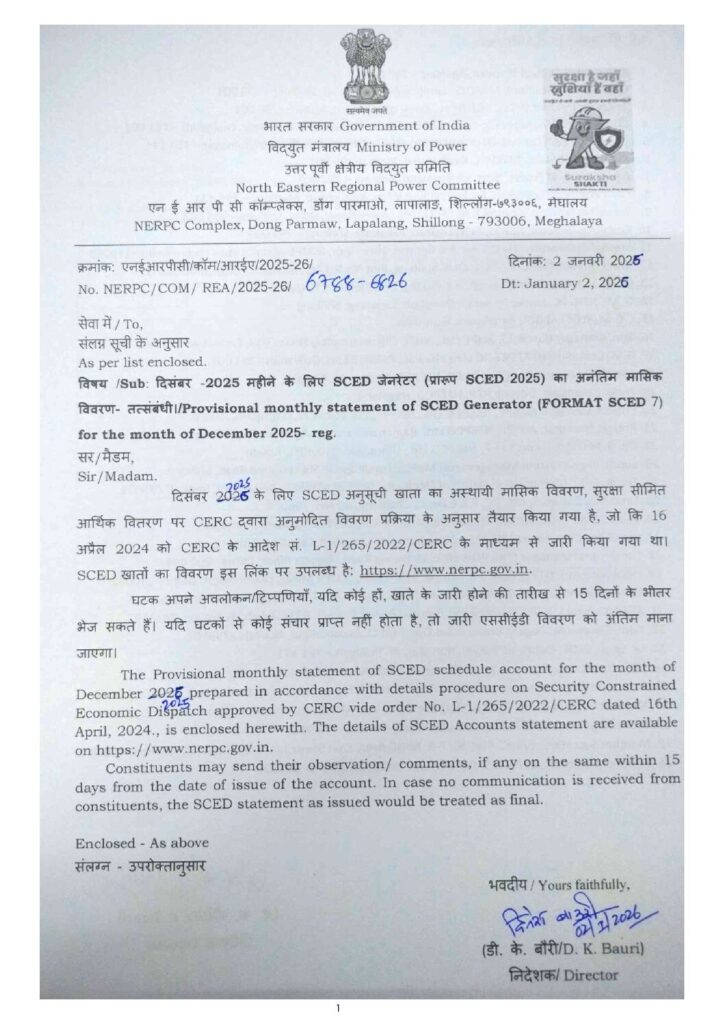 सत्यमेव जयते
सुरक्षा है जहाँ
खुशियाँ हैं वहाँ
Suraksha
SHAKTI
भारत सरकार Government of India
विद्युत मंत्रालय Ministry of Power
उत्तर पूर्वी क्षेत्रीय विद्युत समिति
North Eastern Regional Power Committee
एन ई आर पी सी कॉम्प्लेक्स, डोंग पारमाओ, लापालाङ, शिल्लोंग-७९३००६, मेघालय
NERPC Complex, Dong Parmaw, Lapalang, Shillong - 793006, Meghalaya
क्रमांक: एनईआरपीसी/कॉम/आरईए/2025-26/
दिनांक: 2 जनवरी 2026
No. NERPC/COM/ REA/2025-26/ 6788-6826
Dt: January 2, 2026
सेवा में / To,
संलग्न सूची के अनुसार
As per list enclosed.
विषय /Sub: दिसंबर -2025 महीने के लिए SCED जेनरेटर (प्रारूप SCED 2025) का अनंतिम मासिक
विवरण- तत्संबंधी।/Provisional monthly statement of SCED Generator (FORMAT SCED 7)
for the month of December 2025- reg.
सर/मैडम,
Sir/Madam.
2025
दिसंबर 2026 के लिए SCED अनुसूची खाता का अस्थायी मासिक विवरण, सुरक्षा सीमित
आर्थिक वितरण पर CERC द्वारा अनुमोदित विवरण प्रक्रिया के अनुसार तैयार किया गया है, जो कि 16
अप्रैल 2024 को CERC के आदेश सं. L-1/265/2022/CERC के माध्यम से जारी किया गया था।
SCED खातों का विवरण इस लिंक पर उपलब्ध है: https://www.nerpc.gov.in.
घटक अपने अवलोकन/टिप्पणियाँ, यदि कोई हों, खाते के जारी होने की तारीख से 15 दिनों के भीतर
भेज सकते हैं। यदि घटकों से कोई संचार प्राप्त नहीं होता है, तो जारी एससीईडी विवरण को अंतिम माना
जाएगा।
The Provisional monthly statement of SCED schedule account for the month of
December 2026 prepared in accordance with details procedure on Security Constrained
2025
Economic Dispatch approved by CERC vide order No. L-1/265/2022/CERC dated 16th
April, 2024., is enclosed herewith. The details of SCED Accounts statement are available
on https://www.nerpc.gov.in.
Constituents may send their observation/ comments, if any on the same within 15
days from the date of issue of the account. In case no communication is received from
constituents, the SCED statement as issued would be treated as final.
Enclosed - As above
संलग्न - उपरोक्तानुसार
भवदीय / Yours faithfully,
02/1/2026
(डी. के. बौरी/D. K. Bauri)
निदेशक/ Director
1